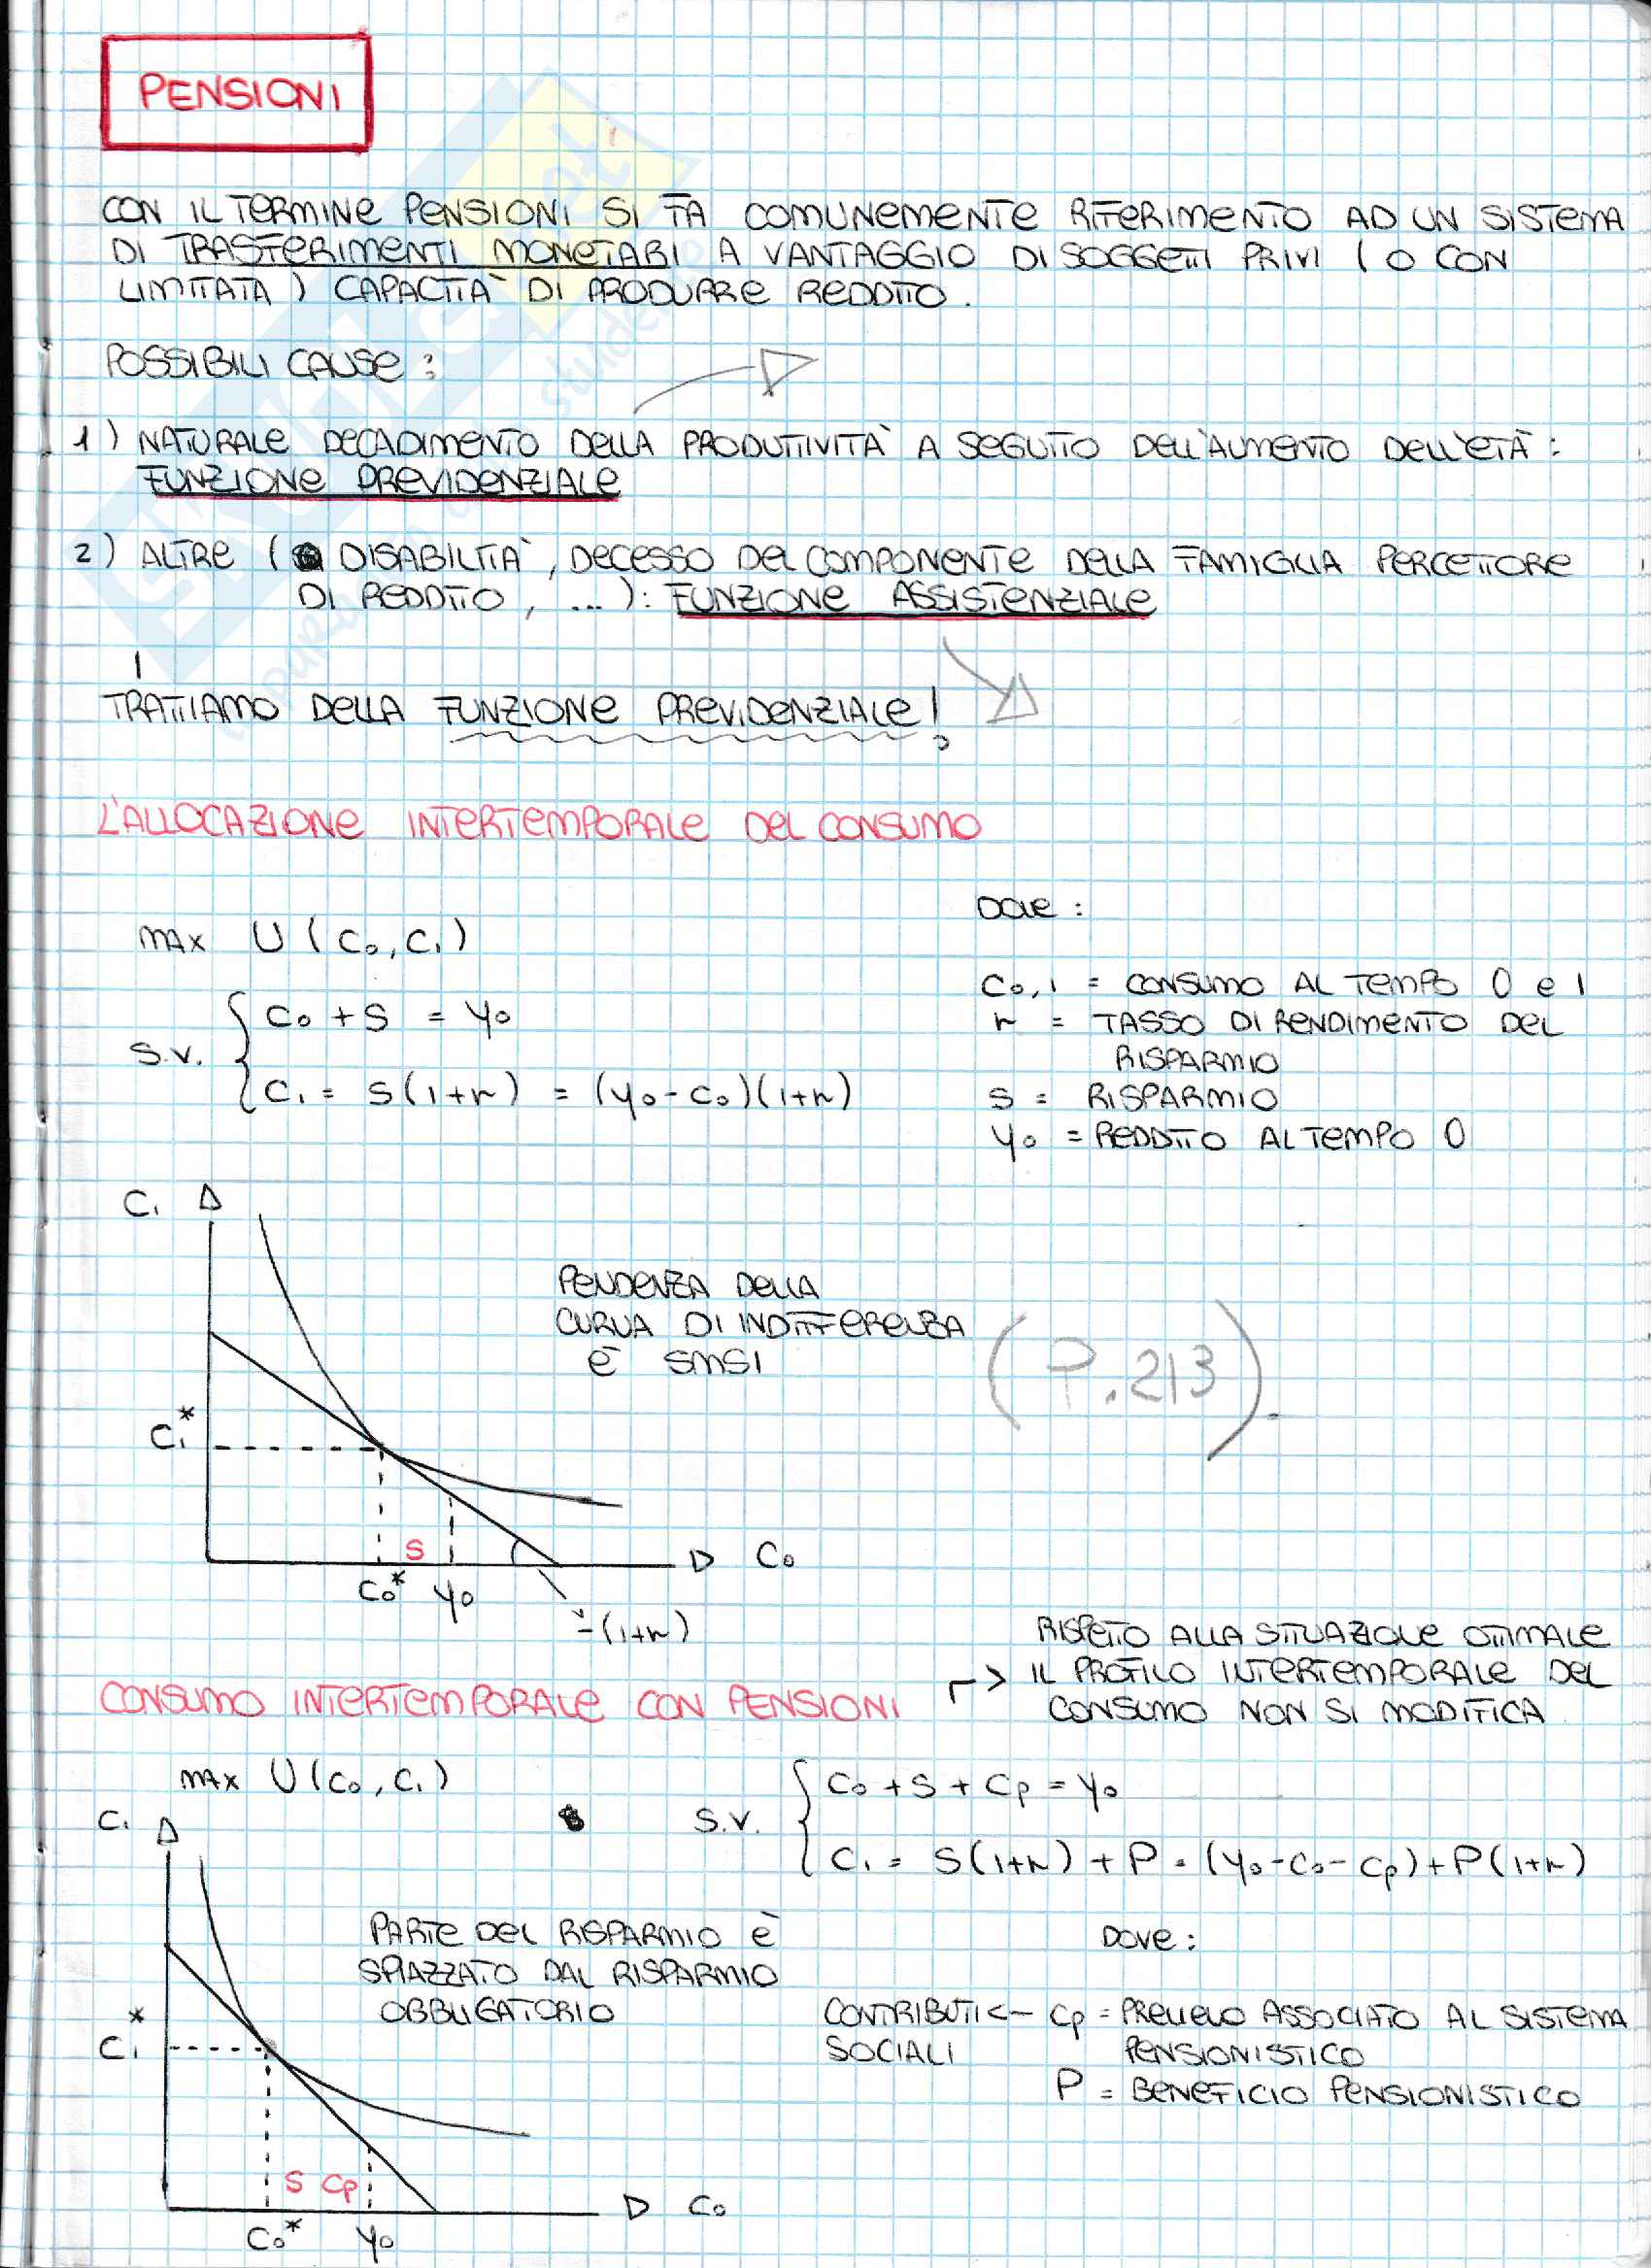 PENSIONI
CON IL TERMINE PENSIONI SI FA COMUNEMENTE RIFERIMENTO AD UN SISTEMA
DI TRASFERIMENTI MONETARI A VANTAGGIO DI SOGGETTI PRIVI (O CON
LIMITATA) CAPACITÀ DI PRODURRE REDDITO.
POSSIBILI CAUSE:
1) NATURALE DECADIMENTO DELLA PRODUTTIVITÀ A SEGUITO DELL'AUMENTO DELL'ETÀ:
FUNZIONE PREVIDENZIALE
2) ALTRE ( DISABILITÀ, DECESSO DEL COMPONENTE DELLA FAMIGLIA PERCETTORE
DI REDDITO, ...): FUNZIONE ASSISTENZIALE
TRATTIAMO DELLA FUNZIONE PREVIDENZIALE!
L'ALLOCAZIONE INTERTEMPORALE DEL CONSUMO
MAX U(C0, C1)
S.V. { C0 + S = Y0
C1 = S(1+r) = (Y0 - C0)(1+r)
DOVE:
C0,1 = CONSUMO AL TEMPO 0 e 1
r = TASSO DI RENDIMENTO DEL
RISPARMIO
S = RISPARMIO
Y0 = REDDITO AL TEMPO 0
C1
PENDENZA DELLA
CURVA DI INDIFFERENZA
È SMSI
(P.213).
C1*
S
C0
C0* Y0
-(1+r)
CONSUMO INTERTEMPORALE CON PENSIONI
-> RISPETTO ALLA SITUAZIONE OTTIMALE
IL PROFILO INTERTEMPORALE DEL
CONSUMO NON SI MODIFICA
MAX U(C0, C1)
S.V. { C0 + S + Cp = Y0
C1 = S(1+r) + P = (Y0 - C0 - Cp) + P(1+r)
C1
PARTE DEL RISPARMIO È
SPIAZZATO DAL RISPARMIO
OBBLIGATORIO
DOVE:
CONTRIBUTI <- Cp = PRELIEVO ASSOCIATO AL SISTEMA
SOCIALI PENSIONISTICO
P = BENEFICIO PENSIONISTICO
C1*
S Cp
C0
C0* Y0